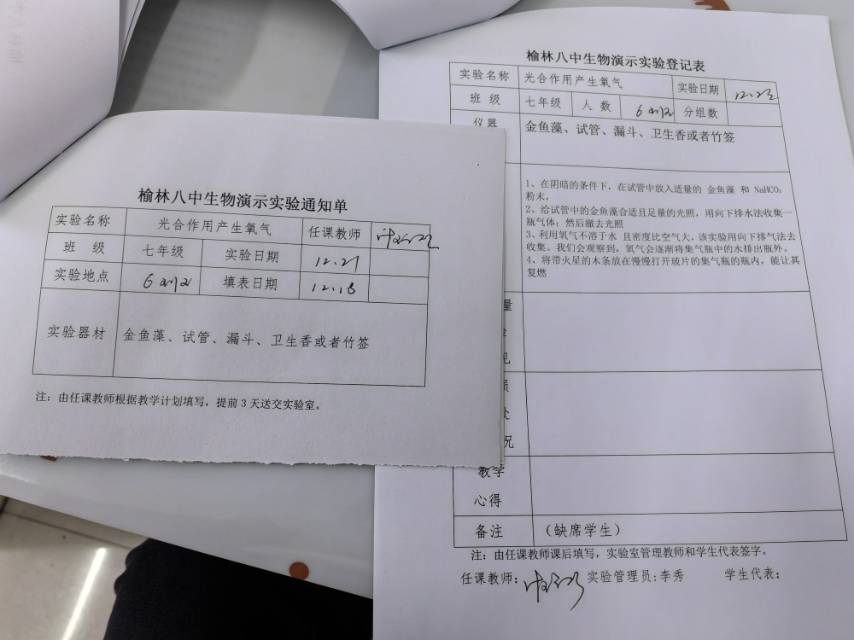 榆林八中生物演示实验通知单
实验名称 光合作用产生氧气 任课教师
班 级 七年级 实验日期 12.21
实验地点 填表日期 12.18
实验器材 金鱼藻、试管、漏斗、卫生香或者竹签
注：由任课教师根据教学计划填写，提前 3 天送交实验室。
榆林八中生物演示实验登记表
实验名称 光合作用产生氧气 实验日期
班 级 七年级 人 数 分组数
仪器 金鱼藻、试管、漏斗、卫生香或者竹签
1、在阴暗的条件下，在试管中放入适量的 金鱼藻 和 NaHCO₃
粉末，
2、给试管中的金鱼藻合适且足量的光照，用向下排水法收集一
瓶气体；然后撤去光照
3、利用氧气不溶于水 且密度比空气大，该实验用向下排气法去
收集。我们会观察到，氧气会逐渐将集气瓶中的水排出瓶外。
4、将带火星的木条放在慢慢打开玻片的集气瓶的瓶内，能让其
复燃
量
见
况
教学
心得
备注 （缺席学生）
注：由任课教师课后填写，实验室管理教师和学生代表签字。
任课教师： 实验管理员：李秀 学生代表：